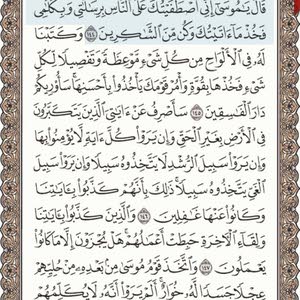 قَالَ يَٰمُوسَىٰٓ إِنِّي ٱصۡطَفَيۡتُكَ عَلَى ٱلنَّاسِ بِرِسَٰلَٰتِي وَبِكَلَٰمِي
فَخُذۡ مَآ ءَاتَيۡتُكَ وَكُن مِّنَ ٱلشَّٰكِرِينَ ١٤٤ وَكَتَبۡنَا
لَهُۥ فِي ٱلۡأَلۡوَاحِ مِن كُلِّ شَيۡءٖ مَّوۡعِظَةٗ وَتَفۡصِيلٗا لِّكُلِّ
شَيۡءٖ فَخُذۡهَا بِقُوَّةٖ وَأۡمُرۡ قَوۡمَكَ يَأۡخُذُواْ بِأَحۡسَنِهَاۚ سَأُوْرِيكُمۡ
دَارَ ٱلۡفَٰسِقِينَ ١٤٥ سَأَصۡرِفُ عَنۡ ءَايَٰتِيَ ٱلَّذِينَ يَتَكَبَّرُونَ
فِي ٱلۡأَرۡضِ بِغَيۡرِ ٱلۡحَقِّ وَإِن يَرَوۡاْ كُلَّ ءَايَةٖ لَّا يُؤۡمِنُواْ بِهَا
وَإِن يَرَوۡاْ سَبِيلَ ٱلرُّشۡدِ لَا يَتَّخِذُوهُ سَبِيلٗا وَإِن يَرَوۡاْ سَبِيلَ
ٱلۡغَيِّ يَتَّخِذُوهُ سَبِيلٗاۚ ذَٰلِكَ بِأَنَّهُمۡ كَذَّبُواْ بِـَٔايَٰتِنَا
وَكَانُواْ عَنۡهَا غَٰفِلِينَ ١٤٦ وَٱلَّذِينَ كَذَّبُواْ بِـَٔايَٰتِنَا
وَلِقَآءِ ٱلۡأٓخِرَةِ حَبِطَتۡ أَعۡمَٰلُهُمۡۚ هَلۡ يُجۡزَوۡنَ إِلَّا مَا كَانُواْ
يَعۡمَلُونَ ١٤٧ وَٱتَّخَذَ قَوۡمُ مُوسَىٰ مِنۢ بَعۡدِهِۦ مِنۡ حُلِيِّهِمۡ
عِجۡلٗا جَسَدٗا لَّهُۥ خُوَارٌۚ أَلَمۡ يَرَوۡاْ أَنَّهُۥ لَا يُكَلِّمُهُمۡ